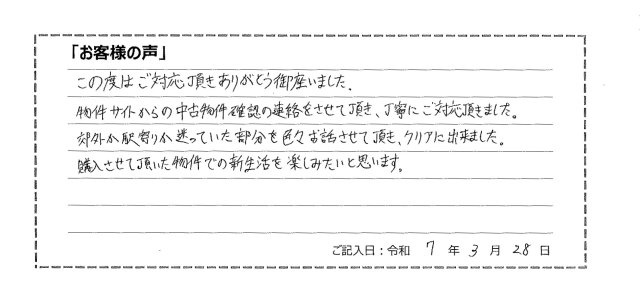 「お客様の声」
この度はご対応頂きありがとう御座いました。
物件サイトからの中古物件確認の連絡をさせて頂き、丁寧にご対応頂きました。
郊外か駅寄りか迷っていた部分を色々お話させて頂き、クリアに出来ました。
購入させて頂いた物件での新生活を楽しみたいと思います。
ご記入日：令和 7 年 3 月 28 日